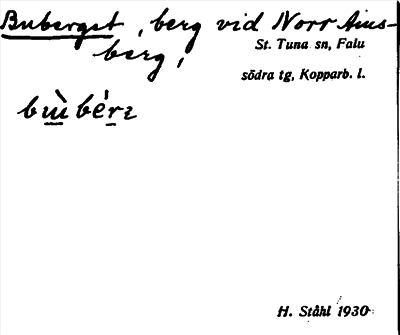 Buberget, berg vid Norr Ams-
berg,
St. Tuna sn, Falu
södra tg, Kopparb. l.
H. Ståhl 1930